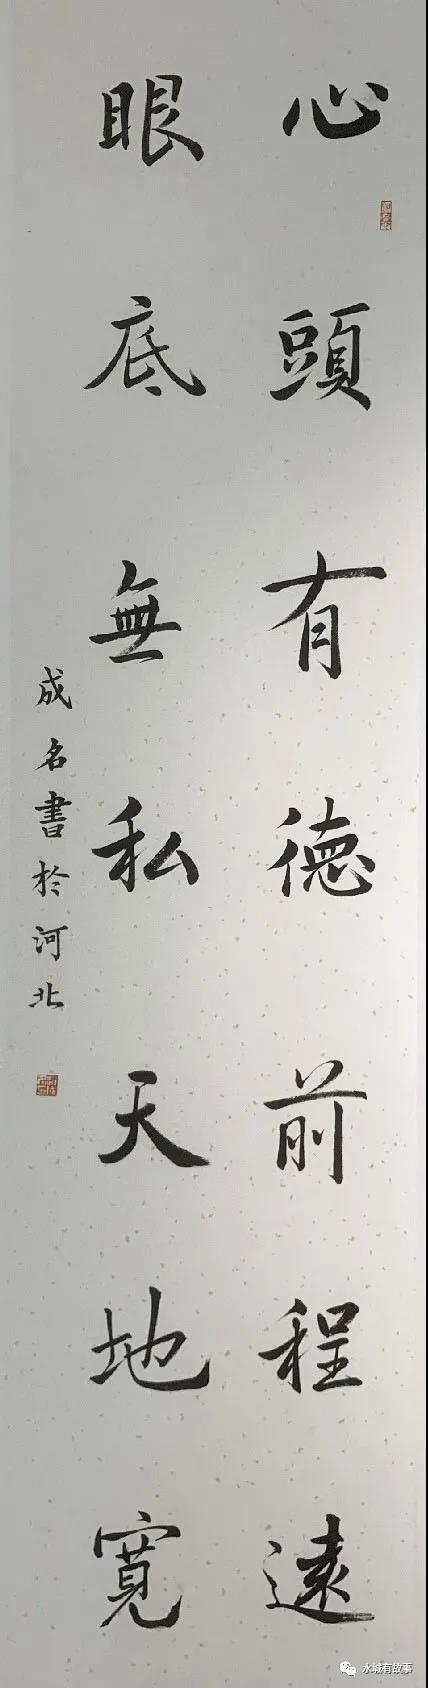 心頭有徳前程遠
眼底無私天地寬
成名書於河北
水城有故事